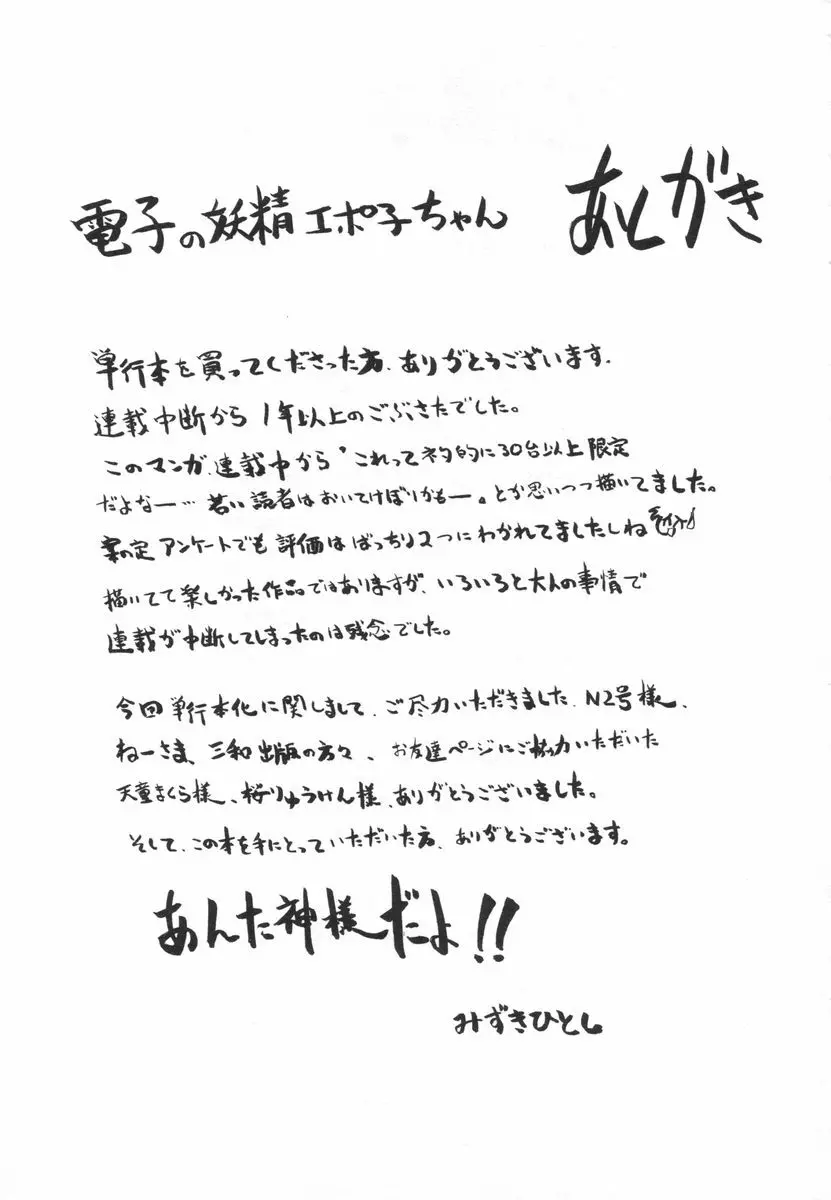 電子の妖精エポ子ちゃん あとがき
単行本を買ってくださった方、ありがとうございます。
連載中断から1年以上のごぶさたでした。
このマンガ、連載中から“これってネタ的に30台以上限定
だよなー…若い読者はおいてけぼりかもー。とか思いつつ描いてました。
案の定アンケートでも評価はばっちり2つにわかれてましたしね
描いてて楽しかった作品ではありますが、いろいろと大人の事情で
連載が中断してしまったのは残念でした。
今回単行本化に関しまして、ご尽力いただきました、N2号様、
ねーさま、三和出版の方々、お友達ページにご協力いただいた
天童まくら様、桜りゅうけん様、ありがとうございました。
そして、この本を手にとっていただいた方、ありがとうございます。
あんた神様だよ!!
みずきひとし